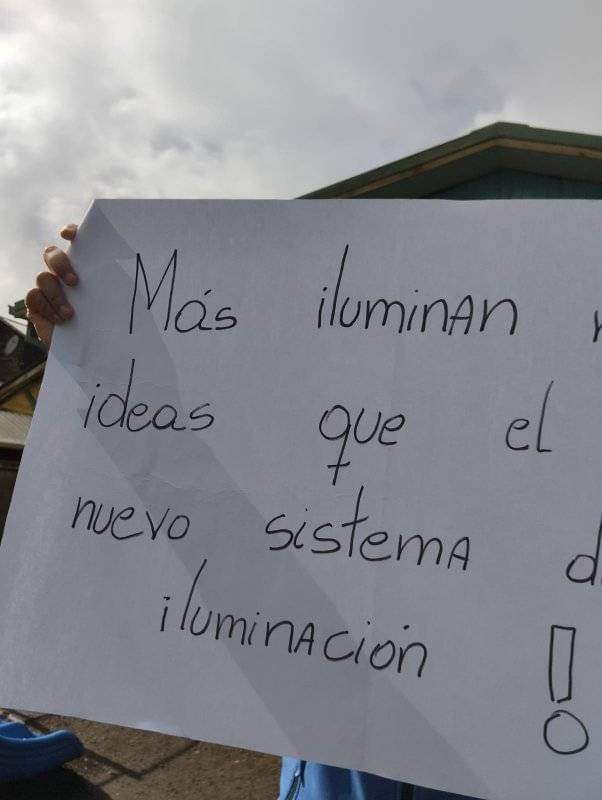 Más iluminan
ideas que el
nuevo sistema d
iluminación !